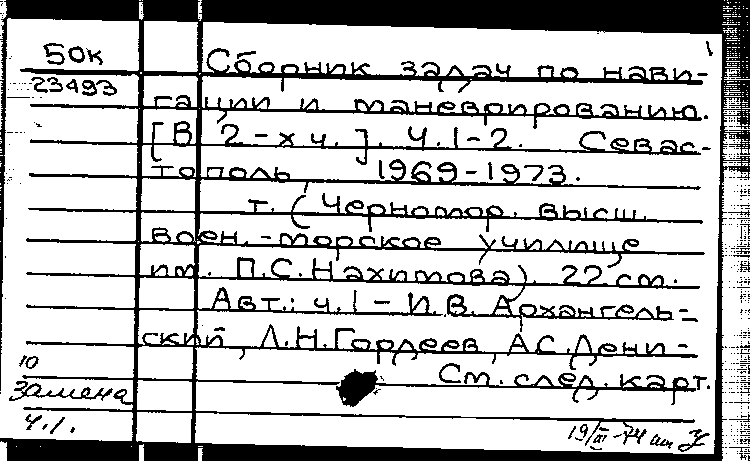 50к
23493
Сборник задач по нави-
гации и маневрированию.
[В 2-х ч.]. Ч.1-2. Севас-
тополь, 1969-1973.
т. (Черномор. высш.
воен.-морское училище
им. П.С.Нахимова). 22 см.
Авт.: ч.1 - И.В. Архангель-
ский, Л.Н.Гордеев, А.С.Дени-
См. след. карт.
10
Замена
ч.1.
19/III-74